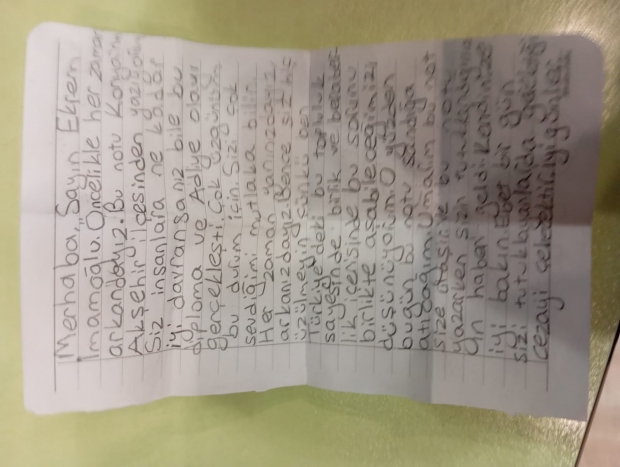 Merhaba, Sayın Ekrem
İmamoğlu. Öncelikle her zaman
arkandayız. Bu notu Konyanın
Akşehir ilçesinden yazıyorum
Siz insanlara ne kadar
iyi davransanız bile bu
diploma ve Adliye olayı
gerçekleşti. Çok üzgünüm
bu durum için. Sizi çok
sevdiğimi mutlaka bilin
Her zaman yanınızdayız
arkanızdayız. Bence siz hiç
üzülmeyin çünkü ben
Türkiyedeki bu topluluk
sayesinde birlik ve beraber-
lik içerisinde bu sorunu
birlikte aşabileceğimizi
düşünüyorum. O yüzden
bugün bu notu sandığa
atıcağım. Umarım bu not
size ulaşır ve bu notu
yazarken sizin tutuklandığınız
ın haberi geldi. Kendinize
iyi bakın. Elbet bir gün
sizi tutuklayanlarıda gerektiği
cezayı çekecektir. İyi günler.